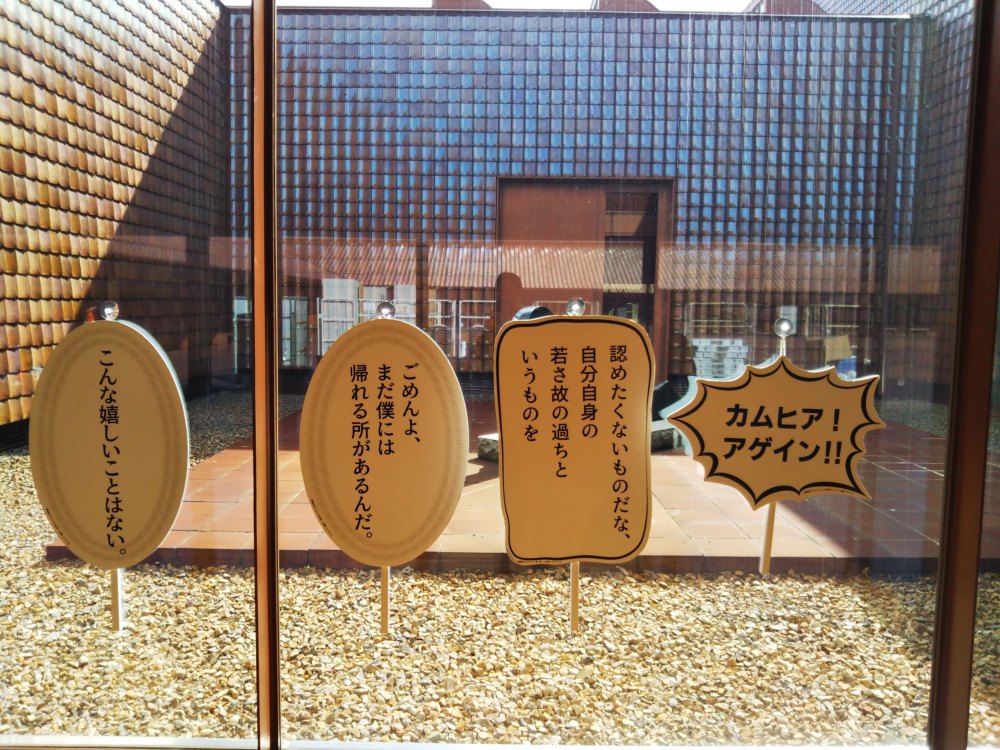 こんな嬉しいことはない。
ごめんよ、
まだ僕には
帰れる所があるんだ。
認めたくないものだな、
自分自身の
若さ故の過ちと
いうものを
カムヒア！
アゲイン!!